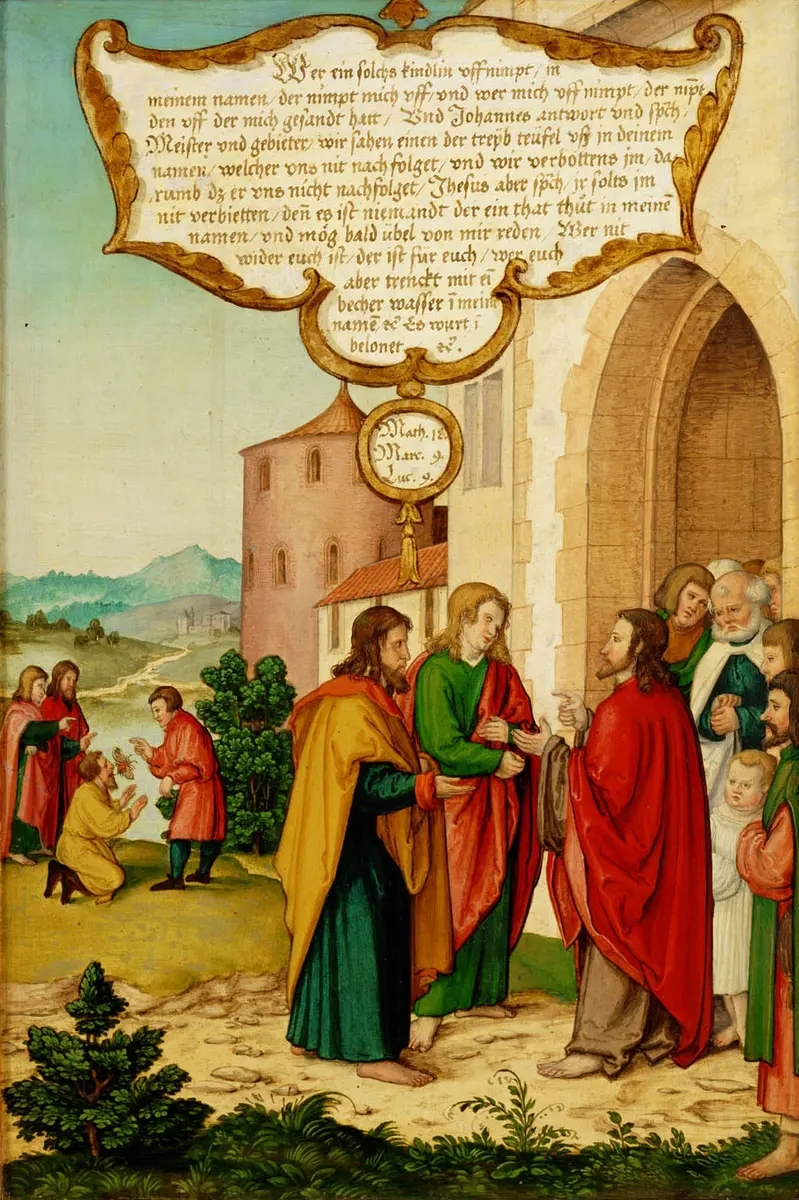 Wer ein solchs kindlin vffnimpt / in
meinem namen / der nimpt mich vff / vnd wer mich vff nimpt / der nīpt
den vff der mich gesandt hatt / Vnd Johannes antwort vnd spch /
Meister vnd gebieter / wir sahen einen der treyb teüfel vß in deinem
namen / welcher vns nit nach folget / vnd wir verbottens jm / da
rumb dz er vns nicht nachfolget / Jhesus aber spch / jr solts jm
nit verbietten / deñ es ist niemandt der ein that thůt in meinē
namen / vnd mög bald übel von mir reden / Wer nit
wider euch ist / der ist für euch / wer euch
aber trenckt mit eī
becher wasser ī meim
namē ꝛc̄ Es wurt ī
belonet ꝛc̄.
Math. 18.
Marc. 9.
Luc. 9.